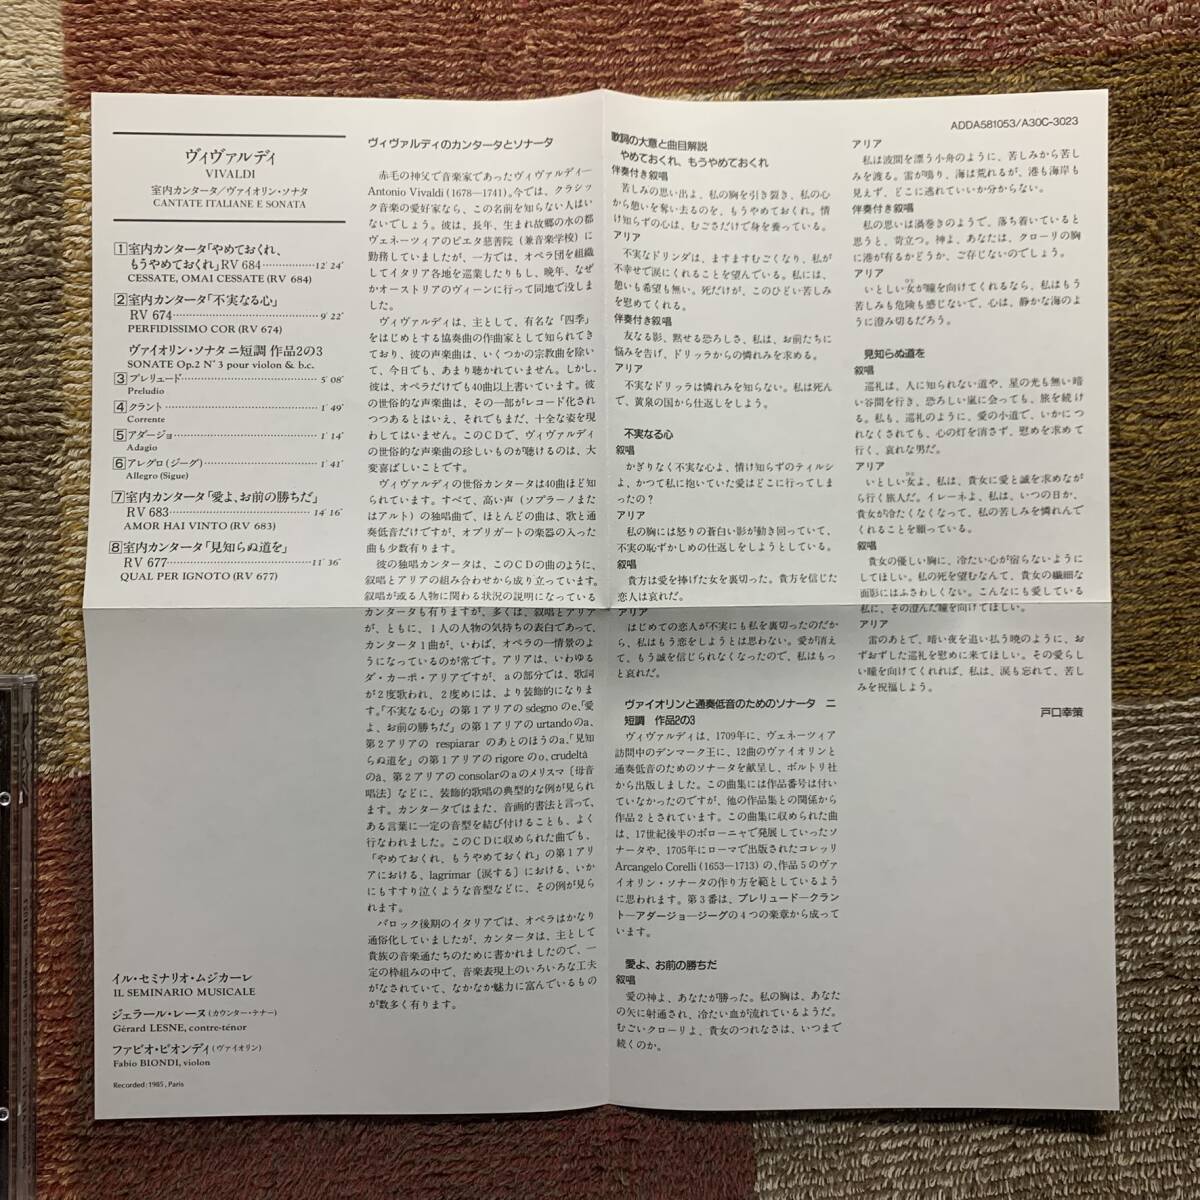 ヴィヴァルディ
VIVALDI
室内カンタータ/ヴァイオリン・ソナタ
CANTATE ITALIANE E SONATA
1 室内カンタータ「やめておくれ、
もうやめておくれ」RV 684 12′24″
CESSATE, OMAI CESSATE (RV 684)
2 室内カンタータ「不実なる心」
RV 674 9′22″
PERFIDISSIMO COR (RV 674)
ヴァイオリン・ソナタ ニ短調 作品2の3
SONATE Op.2 N°3 pour violon & b.c.
3 プレリュード 5′08″
Preludio
4 クラント 1′49″
Corrente
5 アダージョ 1′14″
Adagio
6 アレグロ(ジーグ) 1′41″
Allegro (Sigue)
7 室内カンタータ「愛よ、お前の勝ちだ」
RV 683 14′16″
AMOR HAI VINTO (RV 683)
8 室内カンタータ「見知らぬ道を」
RV 677 11′36″
QUAL PER IGNOTO (RV 677)
イル・セミナリオ・ムジカーレ
IL SEMINARIO MUSICALE
ジェラール・レーヌ(カウンター・テナー)
Gérard LESNE, contre-ténor
ファビオ・ビオンディ(ヴァイオリン)
Fabio BIONDI, violon
Recorded: 1985, Paris
ヴィヴァルディのカンタータとソナータ
赤毛の神父で音楽家であったヴィヴァルディー
Antonio Vivaldi (1678—1741)。今では、クラシッ
ク音楽の愛好家なら、この名前を知らない人はい
ないでしょう。彼は、長年、生まれ故郷の水の都
ヴェネーツィアのピエタ慈善院(兼音楽学校)に
勤務していましたが、一方では、オペラ団を組織
してイタリア各地を巡業したりもし、晩年、なぜ
かオーストリアのヴィーンに行って同地で没しま
した。
ヴィヴァルディは、主として、有名な「四季」
をはじめとする協奏曲の作曲家として知られてき
ており、彼の声楽曲は、いくつかの宗教曲を除い
て、今日でも、あまり聴かれていません。しかし、
彼は、オペラだけでも40曲以上書いています。彼
の世俗的な声楽曲は、その一部がレコード化され
つつあるとはいえ、それでもまだ、十全な姿を現
わしてはいません。このCDで、ヴィヴァルディ
の世俗的な声楽曲の珍しいものが聴けるのは、大
変喜ばしいことです。
ヴィヴァルディの世俗カンタータは40曲ほど知
られています。すべて、高い声(ソプラーノまた
はアルト)の独唱曲で、ほとんどの曲は、歌と通
奏低音だけですが、オブリガートの楽器の入った
曲も少数有ります。
彼の独唱カンタータは、このCDの曲のように、
叙唱とアリアの組み合わせから成り立っています。
叙唱が或る人物に関わる状況の説明になっている
カンタータも有りますが、多くは、叙唱とアリア
が、ともに、1人の人物の気持ちの表白であって、
カンタータ1曲が、いわば、オペラの一情景のよ
うになっているのが常です。アリアは、いわゆる
ダ・カーポ・アリアですが、aの部分では、歌詞
が2度歌われ、2度めには、より装飾的になりま
す。「不実なる心」の第1アリアのsdegnoのe、「愛
よ、お前の勝ちだ」の第1アリアのurtandoのa、
第2アリアの respiarar のあとのほうのa、「見知
らぬ道を」の第1アリアのrigoreのo、crudeltà
のà、第2アリアのconsolarのaのメリスマ〔母音
唱法〕などに、装飾的歌唱の典型的な例が見られ
ます。カンタータではまた、音画的書法と言って、
ある言葉に一定の音型を結び付けることも、よく
行なわれました。このCDに収められた曲でも、
「やめておくれ、もうやめておくれ」の第1アリ
アにおける、lagrimar〔涙する〕における、いか
にもすすり泣くような音型などに、その例が見ら
れます。
バロック後期のイタリアでは、オペラはかなり
通俗化していましたが、カンタータは、主として
貴族の音楽通たちのために書かれましたので、一
定の枠組みの中で、音楽表現上のいろいろな工夫
がなされていて、なかなか魅力に富んでいるもの
が数多く有ります。
歌詞の大意と曲目解説
やめておくれ、もうやめておくれ
伴奏付き叙唱
苦しみの思い出よ、私の胸を引き裂き、私の心
から憩いを奪い去るのを、もうやめておくれ。情
け知らずの心は、むごさだけで身を養っている。
アリア
不実なドリンダは、ますますむごくなり、私が
不幸せで涙にくれることを望んでいる。私には、
憩いも希望も無い。死だけが、このひどい苦しみ
を慰めてくれる。
伴奏付き叙唱
友なる影、黙せる恐ろしさ、私は、お前たちに
悩みを告げ、ドリッラからの憐れみを求める。
アリア
不実なドリッラは憐れみを知らない。私は死ん
で、黄泉の国から仕返しをしよう。
不実なる心
叙唱
かぎりなく不実な心よ、情け知らずのティルシ
よ、かつて私に抱いていた愛はどこに行ってしま
ったの?
アリア
私の胸には怒りの蒼白い影が動き回っていて、
不実の恥ずかしめの仕返しをしようとしている。
叙唱
貴方は愛を捧げた女を裏切った。貴方を信じた
恋人は哀れだ。
アリア
はじめての恋人が不実にも私を裏切ったのだか
ら、私はもう恋をしようとは思わない。愛が消え
て、もう誠を信じられなくなったので、私はもっ
と哀れだ。
ヴァイオリンと通奏低音のためのソナータ ニ
短調 作品2の3
ヴィヴァルディは、1709年に、ヴェネーツィア
訪問中のデンマーク王に、12曲のヴァイオリンと
通奏低音のためのソナータを献呈し、ボルトリ社
から出版しました。この曲集には作品番号は付い
ていなかったのですが、他の作品集との関係から
作品2とされています。この曲集に収められた曲
は、17世紀後半のボローニャで発展していったソ
ナータや、1705年にローマで出版されたコレッリ
Arcangelo Corelli (1653—1713) の、作品5のヴァ
イオリン・ソナータの作り方を範としているよう
に思われます。第3番は、プレリュード—クラン
ト—アダージョ—ジーグの4つの楽章から成って
います。
愛よ、お前の勝ちだ
叙唱
愛の神よ、あなたが勝った。私の胸は、あなた
の矢に射通され、冷たい血が流れているようだ。
むごいクローリよ、貴女のつれなさは、いつまで
続くのか。
ADDA581053/A30C-3023
アリア
私は波間を漂う小舟のように、苦しみから苦し
みを渡る。雷が鳴り、海は荒れるが、港も海岸も
見えず、どこに逃れていいか分からない。
伴奏付き叙唱
私の思いは渦巻きのようで、落ち着いていると
思うと、苛立つ。神よ、あなたは、クローリの胸
に港が有るかどうか、ご存じないのでしょう。
アリア
いとしい女が瞳を向けてくれるなら、私はもう
苦しみも危険も感じないで、心は、静かな海のよ
うに澄み切るだろう。
見知らぬ道を
叙唱
巡礼は、人に知られない道や、星の光も無い暗
い谷間を行き、恐ろしい嵐に会っても、旅を続け
る。私も、巡礼のように、愛の小道で、いかにつ
れなくされても、心の灯を消さず、慰めを求めて
行く、哀れな男だ。
アリア
いとしい女よ、私は、貴女に愛と誠を求めなが
ら行く旅人だ。イレーネよ、私は、いつの日か、
貴女が冷たくなくなって、私の苦しみを憐れんで
くれることを願っている。
叙唱
貴女の優しい胸に、冷たい心が宿らないように
してほしい。私の死を望むなんて、貴女の繊細な
面影にはふさわしくない。こんなにも愛している
私に、その澄んだ瞳を向けてほしい。
アリア
雷のあとで、暗い夜を追い払う暁のように、お
ずおずした巡礼を慰めに来てほしい。その愛らし
い瞳を向けてくれれば、私は、涙も忘れて、苦し
みを祝福しよう。
戸口幸策